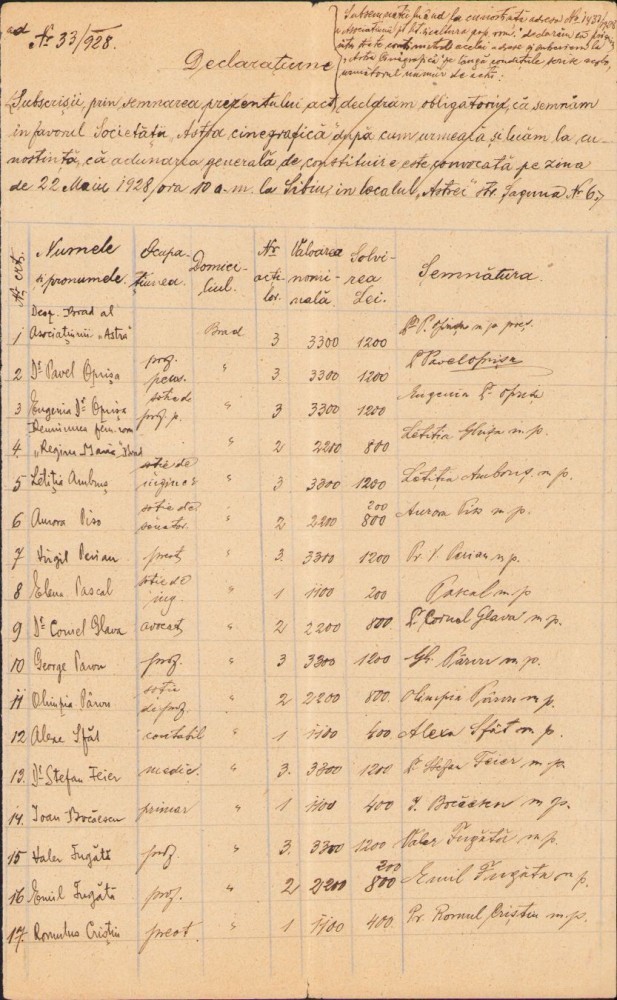 ad Nr 33/928.
Subsemnații luând la cunoștință adresa Nr 1433/1928
a Asociațiunii pt. lit. cultura pop. rom. declarăm
Astra Cinegrafică pe lângă condițiile scrise
următorul număr de acții:
Declarațiune
Subscrișii, prin semnarea prezentului act, declarăm obligatoriu, că semnăm
în favorul Societății "Astra cinegrafică" după cum urmează, și luăm la cu-
noștință, că adunarea generală de constituire este convocată pe ziua
de 22 Maiu 1928, ora 10 a.m. la Sibiu, în localul "Astrei" str. Șaguna Nr 6.
Nr. crt. Numele și pronumele Ocupațiunea. Domiciliul. Nr acțiilor. Valoarea nominală Solvirea Lei. Semnătura.
1 Desp. Brad al Asociațiunii "Astra" Brad 3 3300 1200 Dr P. Oprișa m.p. preș.
2 Dr Pavel Oprișa prof. pens. " 3. 3300 1200 Dr Pavel Oprișa
3 Eugenia Dr Oprișa soția de prof. p. " 3 3300 1200 Eugenia Dr Oprișa
4. Reuniunea fem. rom. "Regina Maria" Brad " 2 2200 800 Letiția m.p.
5 Letiția Ambruș soție de inginer " 3 3300 1200 Letiția Ambruș m.p.
6 Aurora Piso soția de senator. " 2 2200 200 800 Aurora Piso m.p.
7 Virgil Perian preot " 3. 3300 1200 Pr. V. Perian m.p.
8 Elena Pascal soție de ing. " 1 1100 200 Pascal m.p.
9 Dr Cornel Glava avocat " 2 2200 800 Dr. Cornel Glava m.p.
10 George Parvu prof. " 3 3300 1200 Gh. Pârvu m.p.
11 Olimpia Pârvu soția de prof. " 2 2200 800. Olimpia Pârvu m.p.
12 Alexe Sfât contabil " 1 1100 400 Alexa Sfât m.p.
13. Dr Ștefan Feier medic. " 3. 3300 1200 Dr Ștefan Feier m.p.
14. Ioan Bocăescu primar " 1 1100 400 I. Bocăescu m.p.
15 Valer Fugătă prof. " 3. 3300 1200 Valer Fugătă m.p.
16 Emil Fugătă prof. " 2 2200 200 800 Emil Fugăta m.p.
17. Romulus Criștiu preot. " 1 1100 400. Pr. Romul Criștiu m.p.